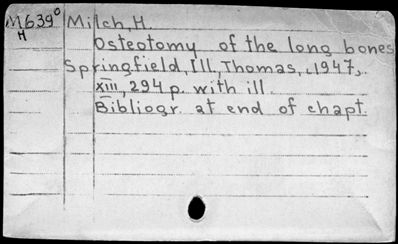 M639° Milch, H.
H
Osteotomy of the long bones
Springfield, Ill., Thomas, c1947,
XIII, 294 p. with ill.
Bibliogr. at end of chapt.